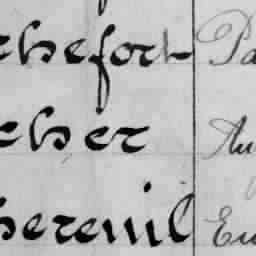 chefort Pa
cher Au
hereuil Eu